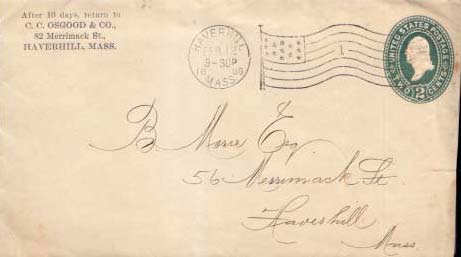 After 10 days, return to
C. C. OSGOOD & CO.,
82 Merrimack St.,
HAVERHILL, MASS.
HAVERHILL
FEB 12
3-30P
MASS.
1
UNITED STATES POSTAGE
TWO 2 CENTS
B. Morse Esq
56 Merrimack St.
Haverhill
Mass.